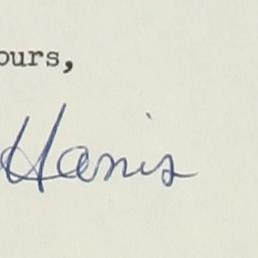 ours,
Harris